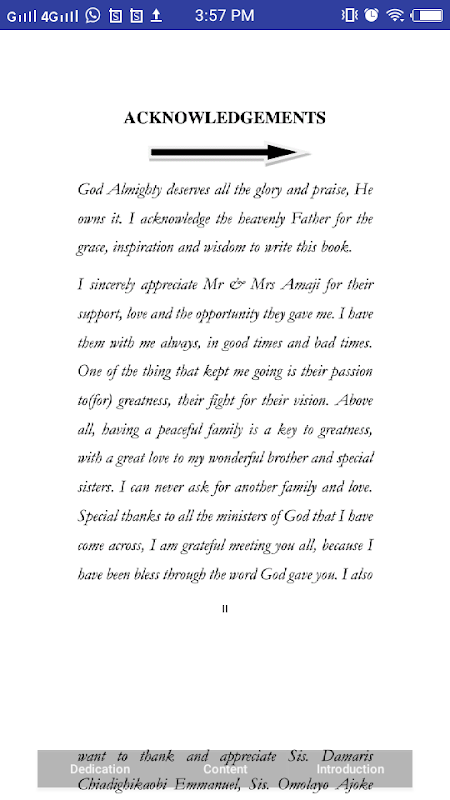 G 4G 3:57 PM
ACKNOWLEDGEMENTS
God Almighty deserves all the glory and praise, He
owns it. I acknowledge the heavenly Father for the
grace, inspiration and wisdom to write this book.
I sincerely appreciate Mr & Mrs Amaji for their
support, love and the opportunity they gave me. I have
them with me always, in good times and bad times.
One of the thing that kept me going is their passion
to(for) greatness, their fight for their vision. Above
all, having a peaceful family is a key to greatness,
with a great love to my wonderful brother and special
sisters. I can never ask for another family and love.
Special thanks to all the ministers of God that I have
come across, I am grateful meeting you all, because I
have been bless through the word God gave you. I also
II
want to thank and appreciate Sis. Damaris
Dedication Content Introduction
Chiadighikaobi Emmanuel, Sis. Omolayo Ajoke